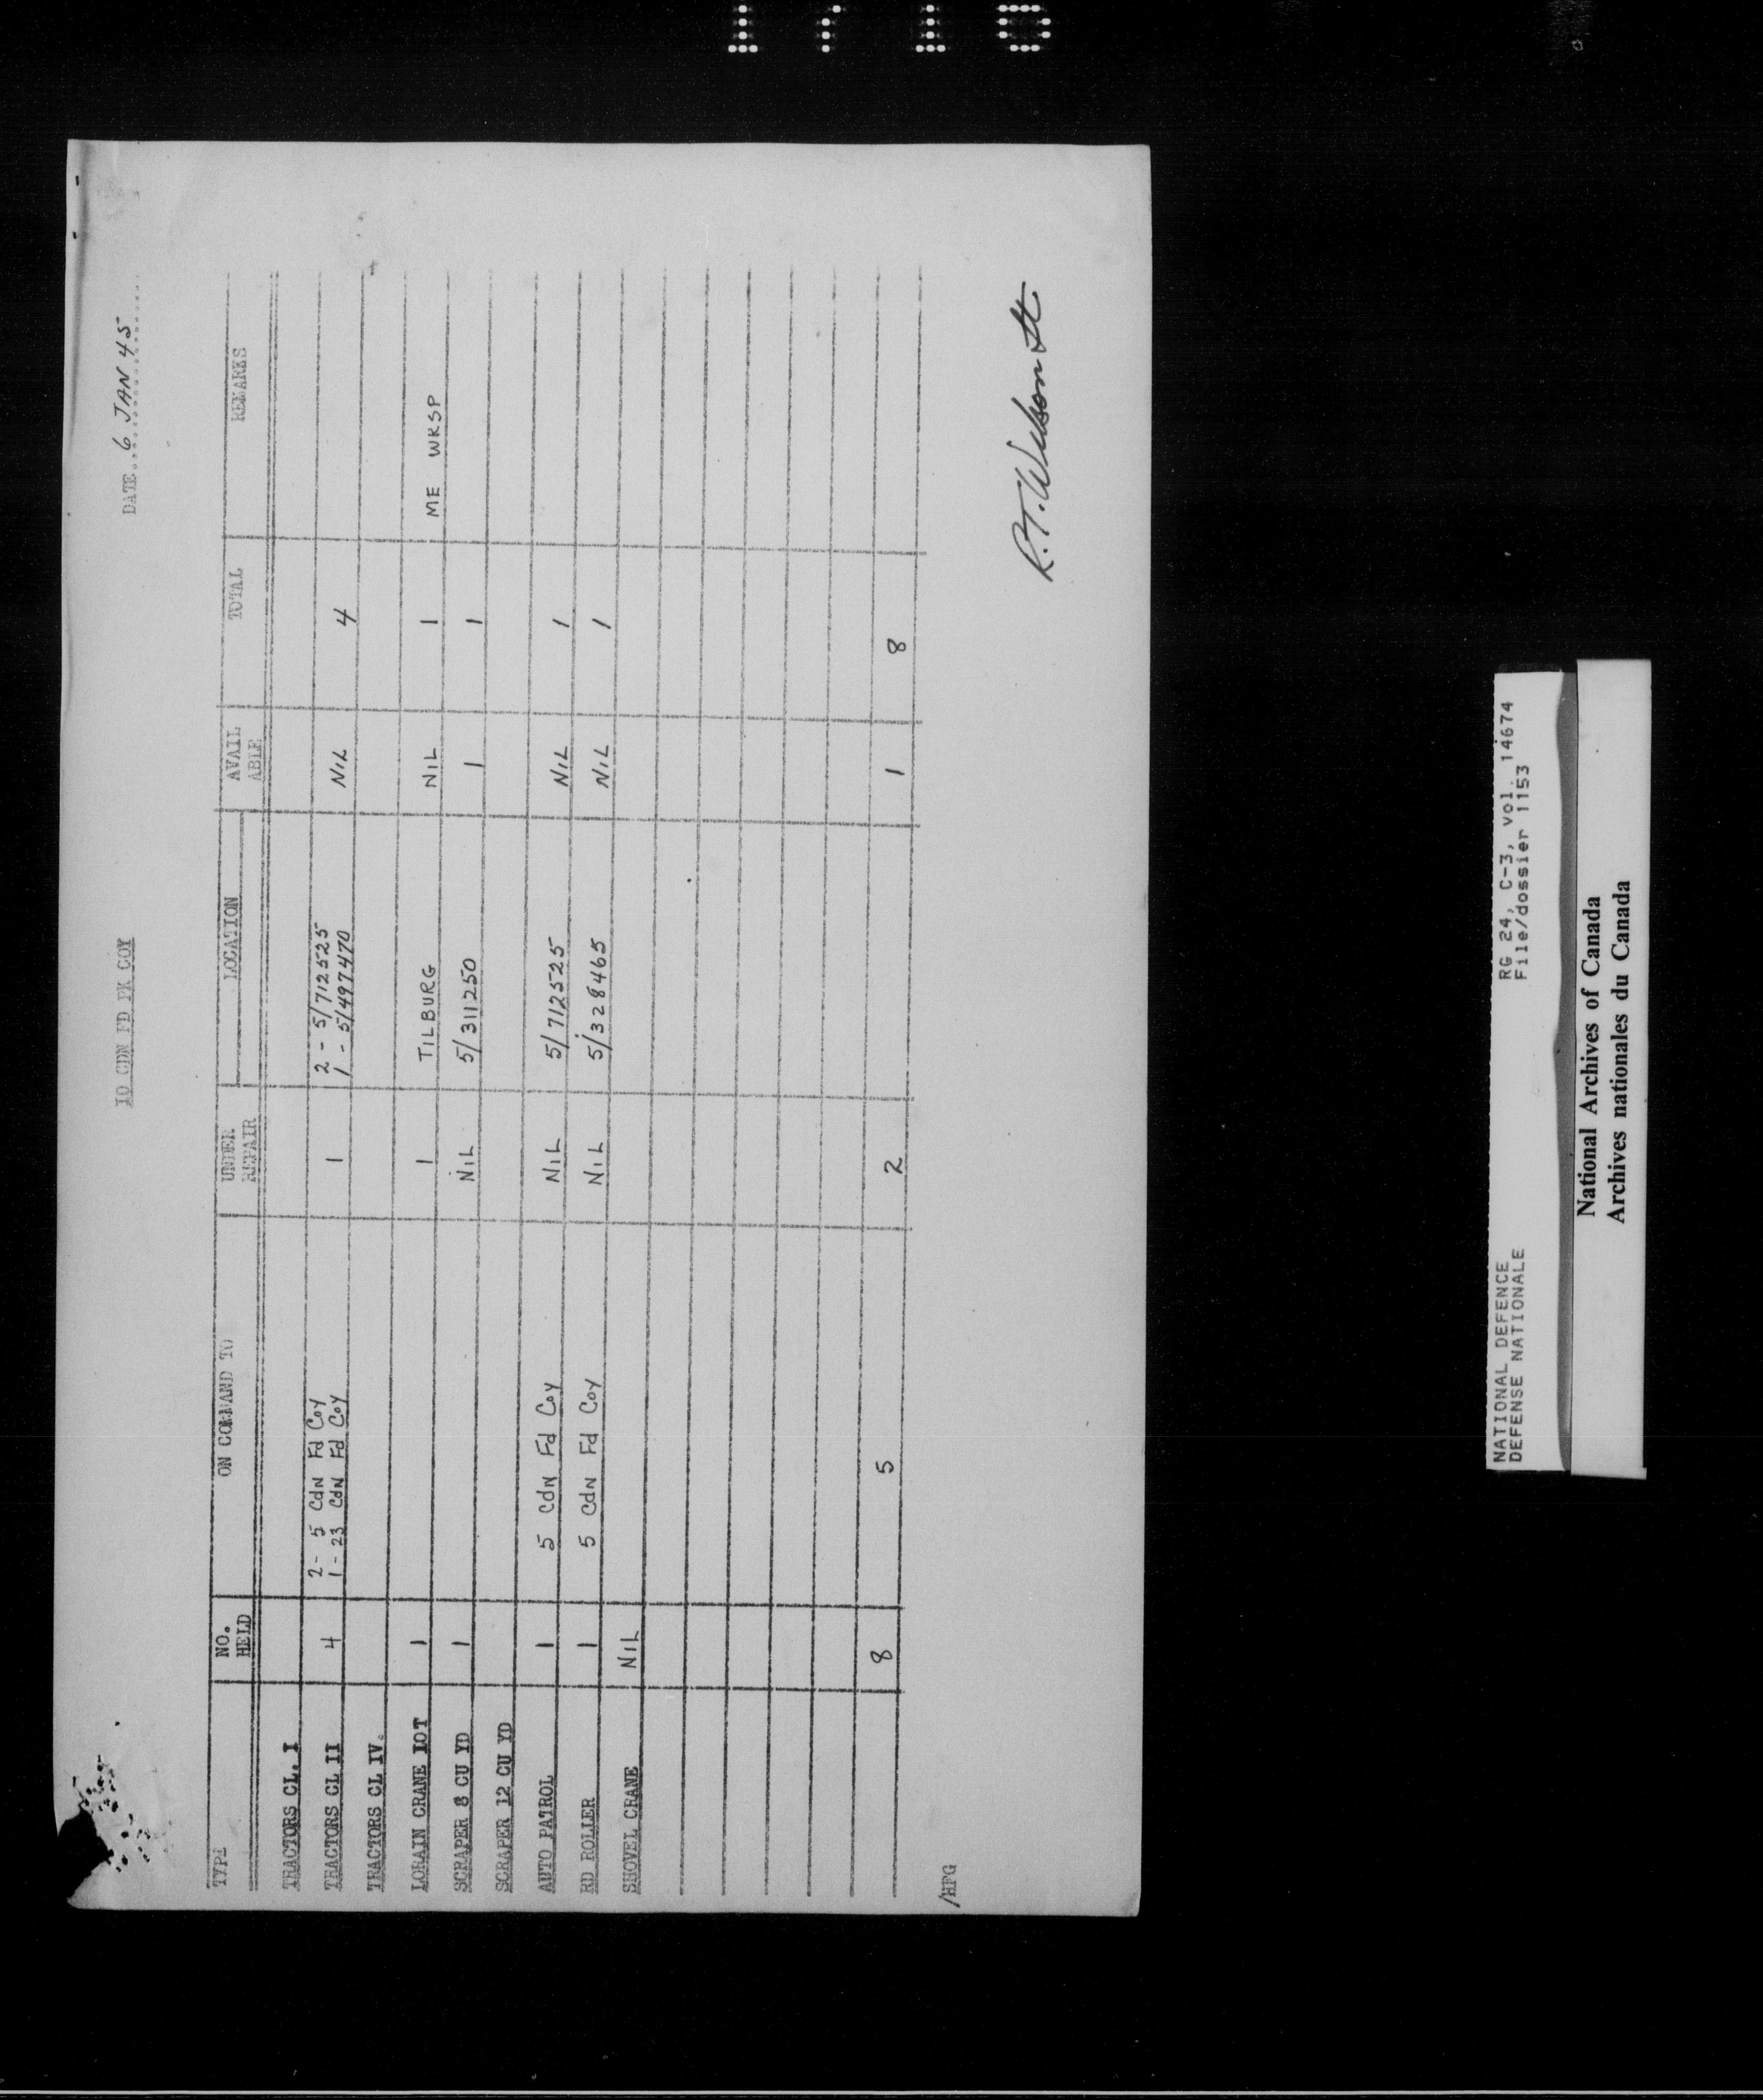 1715
10 CDN FD PK COY
DATE..6 JAN 45
TYPE NO. HELD ON COMMAND TO UNDER REPAIR LOCATION AVAIL ABLE TOTAL REMARKS
TRACTORS CL. I
TRACTORS CL II 4 2 - 5 CdN Fd Coy 1 2 - 5/712525 NIL 4
1 - 23 CdN Fd Coy 1 - 5/497470
TRACTORS CL IV.
LORAIN CRANE 10T 1 1 TILBURG NIL 1 ME WKSP
SCRAPER 8 CU YD 1 NIL 5/311250 1 1
SCRAPER 12 CU YD
AUTO PATROL 1 5 CdN Fd Coy NIL 5/712525 NIL 1
RD ROLLER 1 5 CdN Fd Coy NIL 5/328465 NIL 1
SHOVEL CRANE NIL
8 5 2 1 8
/HFG
R.T. Wilson Lt
NATIONAL DEFENCE RG 24, C-3, vol. 14674
DEFENSE NATIONALE File/dossier 1153
National Archives of Canada
Archives nationales du Canada